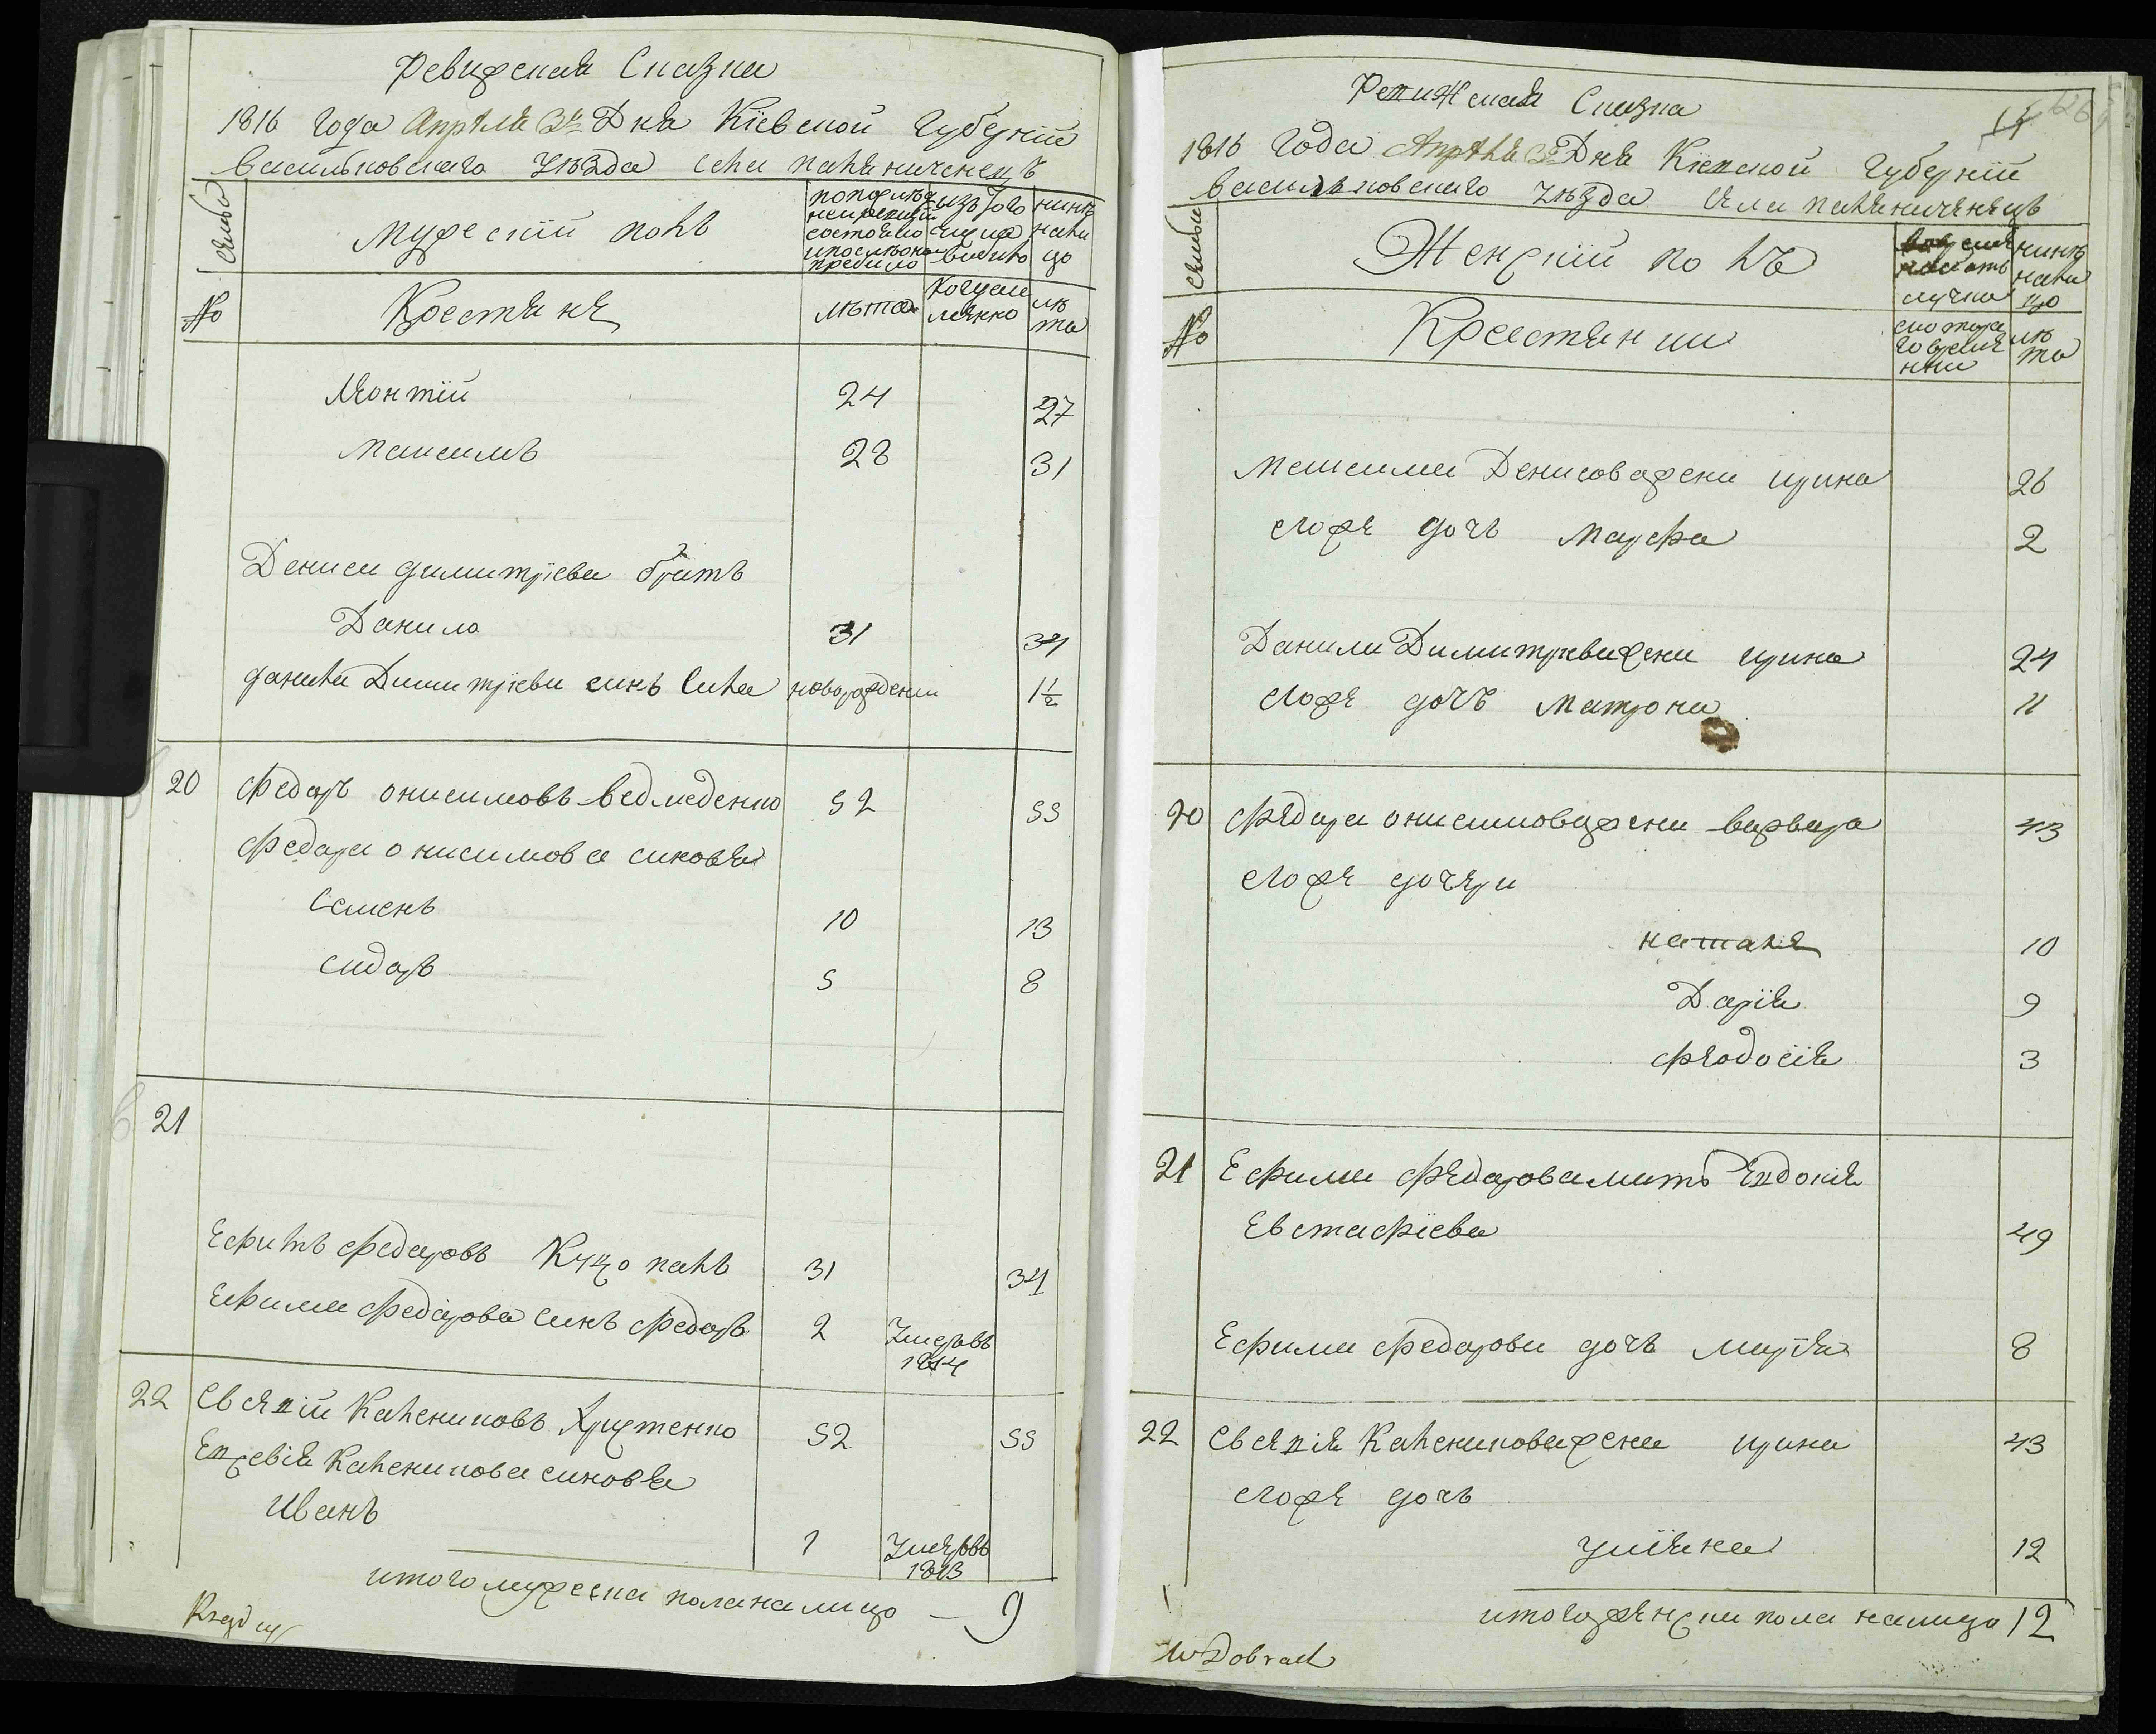 Ревизская Сказка
1816 года Апрѣля 3го Дня Кіевской Губерніи
Васильковскаго уѣзда села паляниченецъ
семьи
мужескій полъ
по последней ревизіи состояло и после оной прибыло
изъ того числа выбыло
нинѣ на лицо
№
Крестяне
лѣта
когда именно
лѣта
Леонтій 24 27
максимъ 28 31
Дениса димитріева 2 братъ
Данило 31 34
данила Димитріева синъ Сила новорожденни 1½
20 Федоръ онисимовъ Ведмеденко 52 55
Федора онисимова синовья
Семенъ 10 13
сидоръ 5 8
21
Ефимъ Федоровъ 31 34
Ефима Федорова синъ Федоръ 2 умеръ въ 1814
22 Евсевій Калениковъ Христенко 52 55
Евсевія Каленикова синовья
Иванъ 1 умеръ въ 1813
итого мужеска пола на лицо — 9
Ревижская Сказка
1816 Года Апрѣля 3го Дня Кіевской Губерніи
васильковскаго уѣзда села паляниченецъ
семьи
Женскій полъ
нинѣ на лицо
№
Крестянки
съ котораго времени
лѣта
Максима Денисова жена ирина 26
егоже дочъ Марфа 2
Данила Димитріева жена ирина 24
егоже дочъ матрона 11
20 Федора онисимова жена варвара 43
егоже дочери
наталя 10
Дарія 9
Феодосія 3
21 Ефима Федорова мать Евдокія
Евстафіева 49
Ефима Федорова дочъ Марія 8
22 Евсевія Каленикова жена ирина 43
егоже дочъ
уліяна 12
итого женска пола на лицо 12